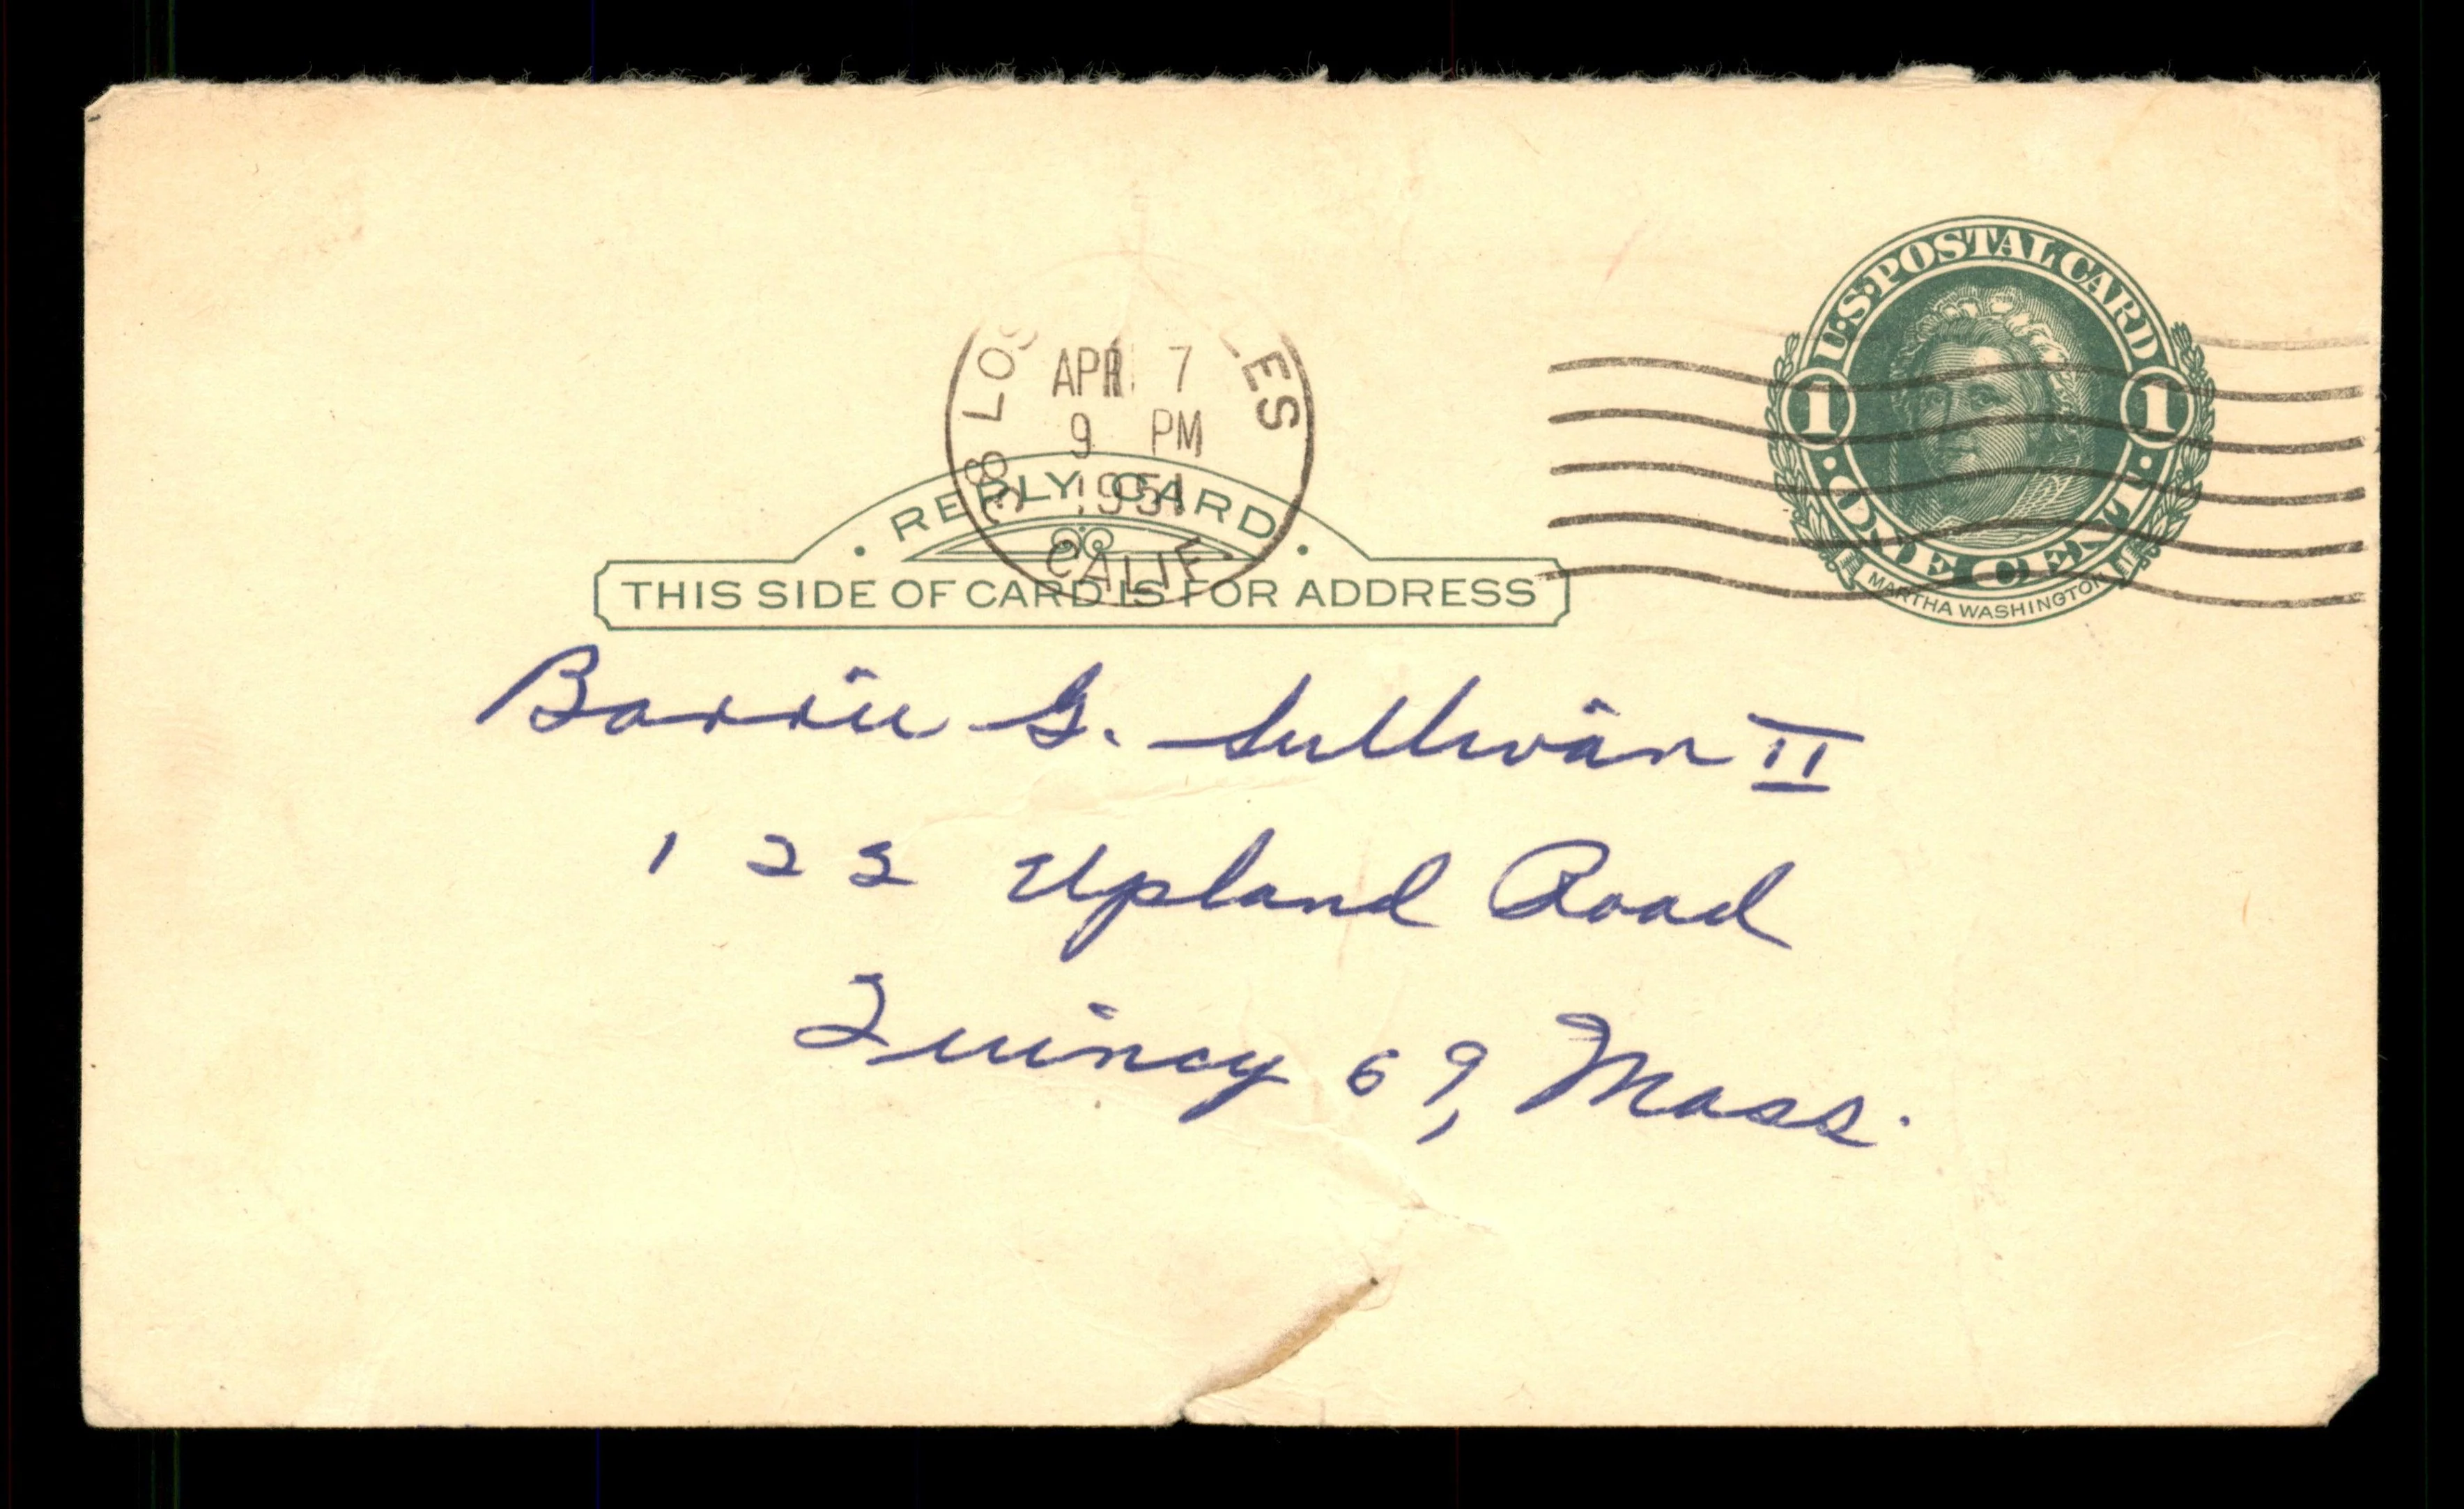 U.S. POSTAL CARD
1 1
· ONE CENT ·
MARTHA WASHINGTON
LOS ES
APR 7
9 PM
1951
38
CALIF
· REPLY CARD ·
THIS SIDE OF CARD IS FOR ADDRESS
Barrie G. Sullivan II
122 Upland Road
Quincy 69, Mass.